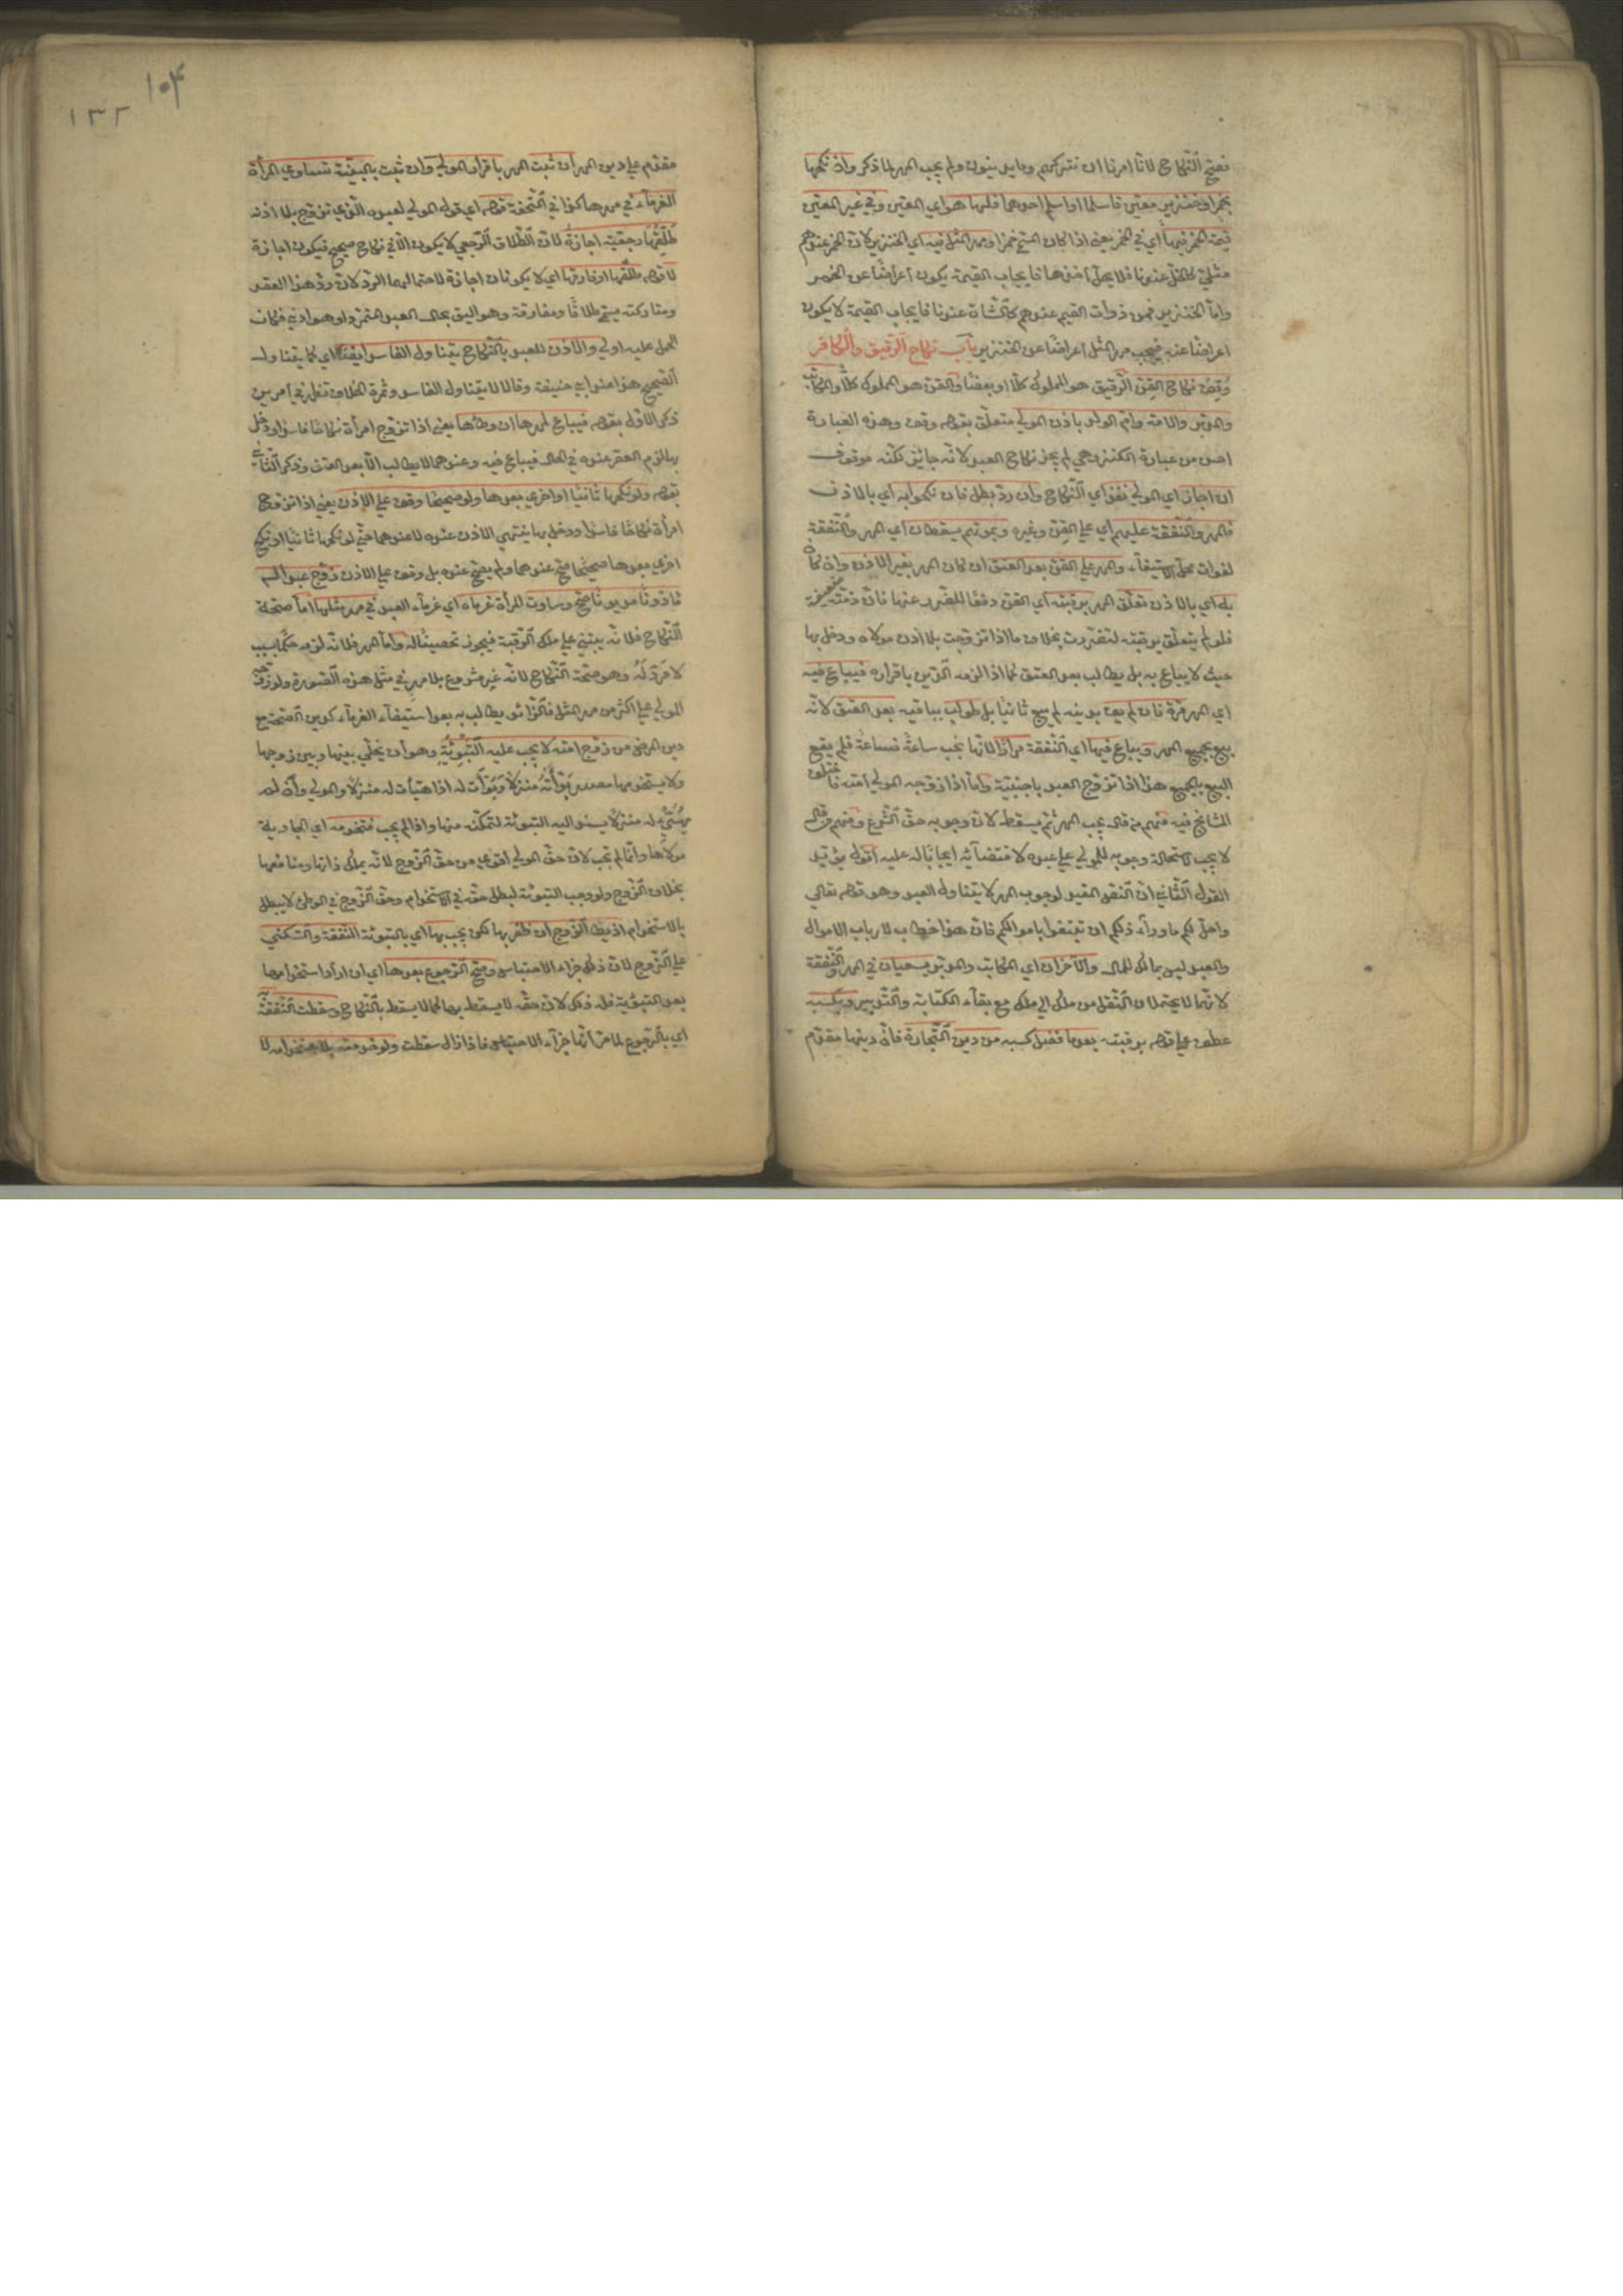 فصح النكاح لانا امرنا ان نتركهم وما يدينون ولم يجب المهر لما ذكر وان نكحها
بخمر او خنزير معين فاسلما او اسلم احدهما فلها هو اي المعين وفي غير المعين
قيمة الخمر فيها اي في الخمر يعني اذا كان المسمى خمرا ومهر المثل فيه اي الخنزير لان الخمر عندهم
مثلي كالخل عندنا فلا يحل اخذها فايجاب القيمة يكون اعراضا عن الخمر
واما الخنزير فمن ذوات القيم عندهم كالشاة عندنا فايجاب القيمة لا يكون
اعراضا عنه فيجب مهر المثل اعراضا عن الخنزير باب نكاح الرقيق والكافر
وقف نكاح القن الرقيق هو المملوك كلا او بعضا والقن هو المملوك كلا والمكاتب
والمدبر والامة وام الولد باذن المولي متعلق بقوله وقف وهذه العبارة
احسن من عبارة الكنز وهي لم يجز نكاح العبد لانه جائز لكنه موقوف
ان اجاز اي المولي نفذ اي النكاح وان رد بطل فان نكحوا به اي بالاذن
فالمهر والنفقة عليهم اي علي القن وغيره وبموتهم يسقطان اي المهر والنفقة
لفوات محل الاستيفاء والمهر علي القن بعد العتق ان كان المهر بغير الاذن وان كان
به اي بالاذن تعلق المهر برقبته اي القن دفعا للضرر عنها فان ذمته ضعيفة
فلو لم يتعلق برقبته لتضررت بخلاف ما اذا تزوجت بلا اذن مولاه ودخل بها
حيث لا يباع به بل يطالب بعد العتق كما اذا لزمه الدين باقراره فيباع فيه
اي المهر مرة فان لم يف بدينه لم يبع ثانيا بل طولب بباقيه بعد العتق لانه
بيع بجميع المهر ويباع فيها اي النفقة مرارا لانها يجب ساعة فساعة فلم يقع
البيع بالجميع هذا اذا تزوج العبد باجنبية واما اذا زوجه المولي امته فاختلف
المشائخ فيه فمنهم من قال يجب المهر ثم يسقط لان وجوبه حق الشرع ومنهم من قال
لا يجب لاستحالة وجوبه للمولي علي عبده لاقتضائه ايجابا له عليه اقول يؤيد
القول الثاني ان النص المفيد لوجوب المهر لا يتناول العبد وهو قوله تعالي
واحل لكم ما وراء ذلكم ان تبتغوا باموالكم فان هذا خطاب لارباب الاموال
والعبد ليس بمالك للمال والاخران اي المكاتب والمدبر يسعيان في المهر والنفقة
لانهما لا يحتملان النقل من ملك الي ملك مع بقاء الكتابة والتدبير وبكسبه
عطف علي قوله برقبته بعد ما فضل كسبه من دين التجارة فان دينها مقدم
١٠٤
١٣٢
مقدم علي دين المهر ان ثبت المهر باقرار المولي وان ثبت بالبينة تساوي المرأة
الغرماء في مهرها كذا في التحفة قوله اي قول المولي لعبده الذي تزوج بلا اذنه
طلقها رجعية اجازة لان الطلاق الرجعي لا يكون الا في نكاح صحيح فيكون اجازة
لا قوله طلقها او فارقها اي لا يكونان اجازة لاحتمالهما الرد لان رد هذا العقد
ومتاركته يسمي طلاقا ومفارقة وهو اليق بحال العبد المتمرد او هو ادني فكان
الحمل عليه اولي والاذن للعبد بالنكاح يتناول الفاسد ايضا اي كما يتناول
الصحيح هذا عند ابي حنيفة وقالا لا يتناول الفاسد وثمرة الخلاف تظهر في امرين
ذكر الاول بقوله فيباع لمهرها ان وطئها يعني اذا تزوج امرأة نكاحا فاسدا ودخل
بها لزم العقر عنده في الحال فيباع فيه وعندهما لا يطالب الا بعد العتق وذكر الثاني
بقوله ولو نكحها ثانيا او اخري بعدها ولو صحيحا وقف علي الاذن يعني اذا تزوج
امرأة نكاحا فاسدا ودخل بها ينتهي الاذن عنده لا عندهما حتي لو نكحها ثانيا او نكح
اخري بعدها صحيحا صح عندهما ولم يصح عنده بل وقف علي الاذن زوج عبدا له
ماذونا مديونا صح وساوت المرأة غرماه اي غرماء العبد في مهر مثلها اما صحة
النكاح فلانه يبتني علي ملك الرقبة فيجوز تحصينا له واما المهر فلانه لزمه حكما بسبب
لا مرد له وهو صحة النكاح لانه غير مشروع بلا مهر في مثل هذه الصورة ولو زوجه
المولي علي اكثر من مهر المثل فالزائد يطالب به بعد استيفاء الغرماء كدين الصحة مع
دين المرض من زوج امته لا يجب عليه التبوئة وهو ان يخلي بينها وبين زوجها
ولا يستخدمها مصدر بوأته منزلا وبوأت له اذا هيأت له منزلا والمولي وان لم
يهيئ له منزلا يسند اليه التبوئة لتمكنه منها واذا لم يجب فتخدمه اي الجارية
مولاها وانما لم تجب لان حق المولي اقوي من حق الزوج لانه يملك ذاتها ومنافعها
بخلاف الزوج ولو وجب التبوئة لبطل حقه في الاستخدام وحق الزوج في الوطئ لا يبطل
بالاستخدام اذ يطأ الزوج ان ظفر بها لكن يجب بها اي بالتبوئة النفقة والسكني
علي الزوج لان ذلك جزاء الاحتباس وصح الرجوع بعدها اي ان اراد استخدامها
بعد التبوئة فله ذلك لان حقه لا يسقط بها كما لا يسقط بالنكاح وسقطت النفقة
اي بالرجوع لما مر انها جزاء الاحتباس فاذا زال سقطت ولو خدمته بلا استخدامه لا